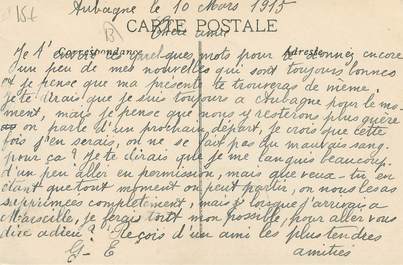 Aubagne le 10 Mars 1915
CARTE POSTALE
Chère amie
Correspondance Adresse
Je t'envoie ces quelques mots pour te donner encore
un peu de mes nouvelles qui sont toujours bonnes
et je pense que ma présente te trouveras de même,
je te dirais que je suis toujours a Aubagne pour le mo-
ment, mais je pense que nous y resterons plus guère
on parle d'un prochain départ, je crois que cette
fois j'en serais, on ne se fait pas du mauvais sang
pour ça? Je te dirais que je me languis beaucoup
d'un peu aller en permission, mais que veux-tu en
étant que tout moment on peut partir, on nous les as
supprimées complètement, mais si lorsque j'arrivais a
Marseille, je ferais tout mon possible, pour aller vous
dire adieu? Reçois d'un ami les plus tendres
G. E amitiés